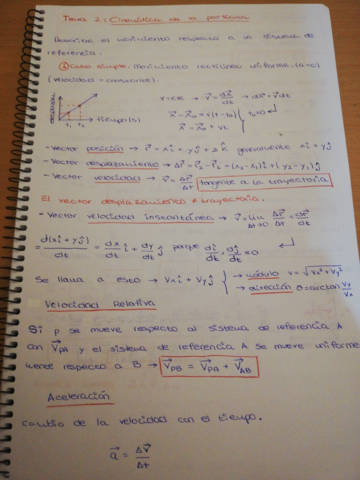 Tema 2: Cinemática de la partícula
Describe el movimiento respecto a un sistema de
referencia.
① Caso simple: Movimiento rectilíneo uniforme (a=0)
(velocidad = constante).
desplaz.
t₁ t₂ tiempo(s)
v=cte → v⃗ = dx⃗/dt → dx⃗ = v⃗dt
x⃗ - x⃗₀ = v(t-t₀) } t₀=0
x⃗ - x⃗₀ = vt
- Vector posición → r⃗ = xi + yj + zk generalmente xi + yj
- Vector desplazamiento → Δr⃗ = r⃗₂ - r⃗₁ = (x₂-x₁)i + (y₂-y₁)j
- Vector velocidad → v⃗ = Δr⃗/Δt tangente a la trayectoria
El vector desplazamiento ≠ trayectoria.
- Vector velocidad instantánea → v⃗ = lim Δt→0 Δr⃗/Δt = dr⃗/dt
= d(xi + yj)/dt = dx/dt i + dy/dt j porque di/dt, dj/dt = 0
Se llama a esto → Vxi + Vyj { → módulo v = √Vx² + Vy²
→ dirección θ = arctan Vy/Vx
Velocidad Relativa
Si p se mueve respecto al sistema de referencia A
con V⃗PA y el sistema de referencia A se mueve uniforme
mente respecto a B → V⃗PB = V⃗PA + V⃗AB
Aceleración
Cambio de la velocidad con el tiempo.
a⃗ = Δv⃗/Δt